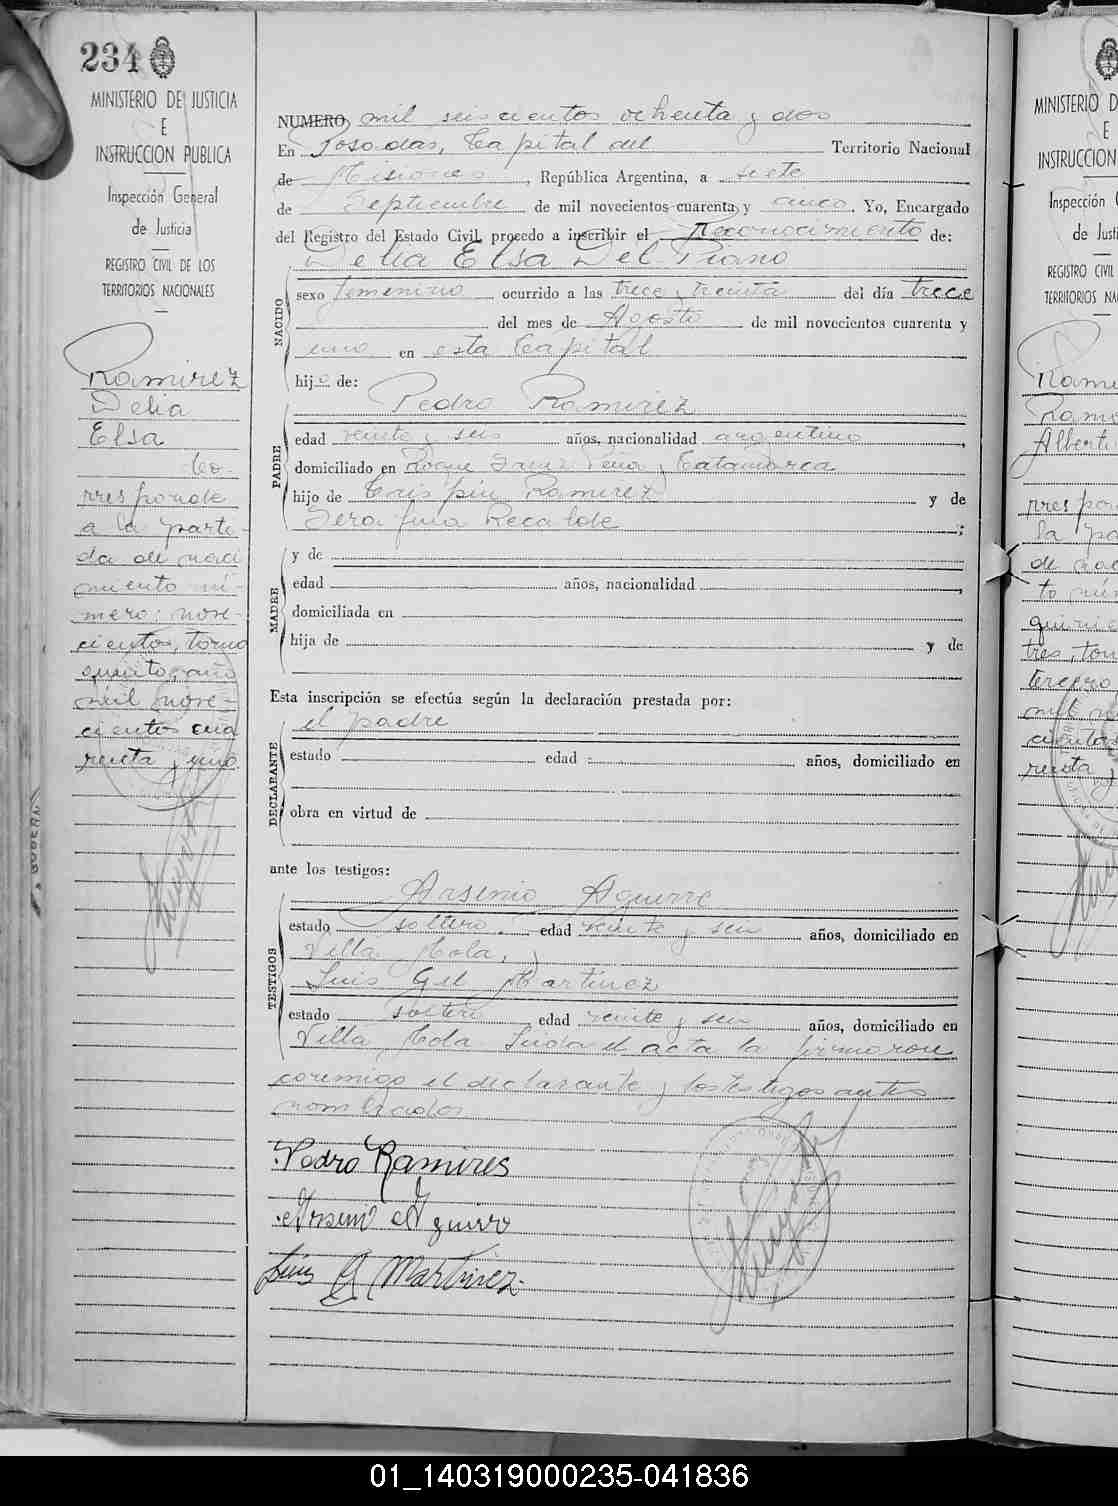 234
MINISTERIO DE JUSTICIA
E
INSTRUCCION PUBLICA
Inspección General
de Justicia
REGISTRO CIVIL DE LOS
TERRITORIOS NACIONALES
Ramirez
Delia
Elsa
Co-
rresponde
a la parti-
da de naci
miento nú-
mero: nove-
cientos, tomo
quinto, año
mil nove-
cientos cua
renta y uno
NUMERO mil seiscientos ochenta y dos
En Posadas, Capital del Territorio Nacional
de Misiones, República Argentina, a siete
de Septiembre de mil novecientos cuarenta y cinco. Yo, Encargado
del Registro del Estado Civil, procedo a inscribir el Reconocimiento de:
Delia Elsa Del Piano
NACIDO
sexo femenino ocurrido a las trece y treinta del día trece
del mes de Agosto de mil novecientos cuarenta y
uno en esta Capital
hija de:
PADRE
Pedro Ramirez
edad veinte y seis años, nacionalidad argentino,
domiciliado en Roque Saenz Peña y Catamarca
hijo de Crispin Ramirez y de
Serafina Recalde ;
MADRE
y de
edad años, nacionalidad ,
domiciliada en
hija de y de
Esta inscripción se efectúa según la declaración prestada por:
DECLARANTE
el padre
estado edad : años, domiciliado en
obra en virtud de
ante los testigos:
TESTIGOS
Arsenio Aguirre
estado soltero, edad veinte y seis años, domiciliado en
Villa Mola, y
Luis Gil Martinez
estado soltero edad veinte y seis años, domiciliado en
Villa Mola. Leida el acta la firmaron
conmigo el declarante y los testigos antes
nombrados
Pedro Ramires
Arsenio Aguirre
Luis G Martinez
MINISTERIO D
E
INSTRUCCION
Inspección
de Justi
REGISTRO CIVIL
TERRITORIOS NA
Rami
Ramo
Alberti
rres po
la pa
de nac
to nú
quinie
tres, tom
tercero
mil no
cientos
renta y
01_140319000235-041836